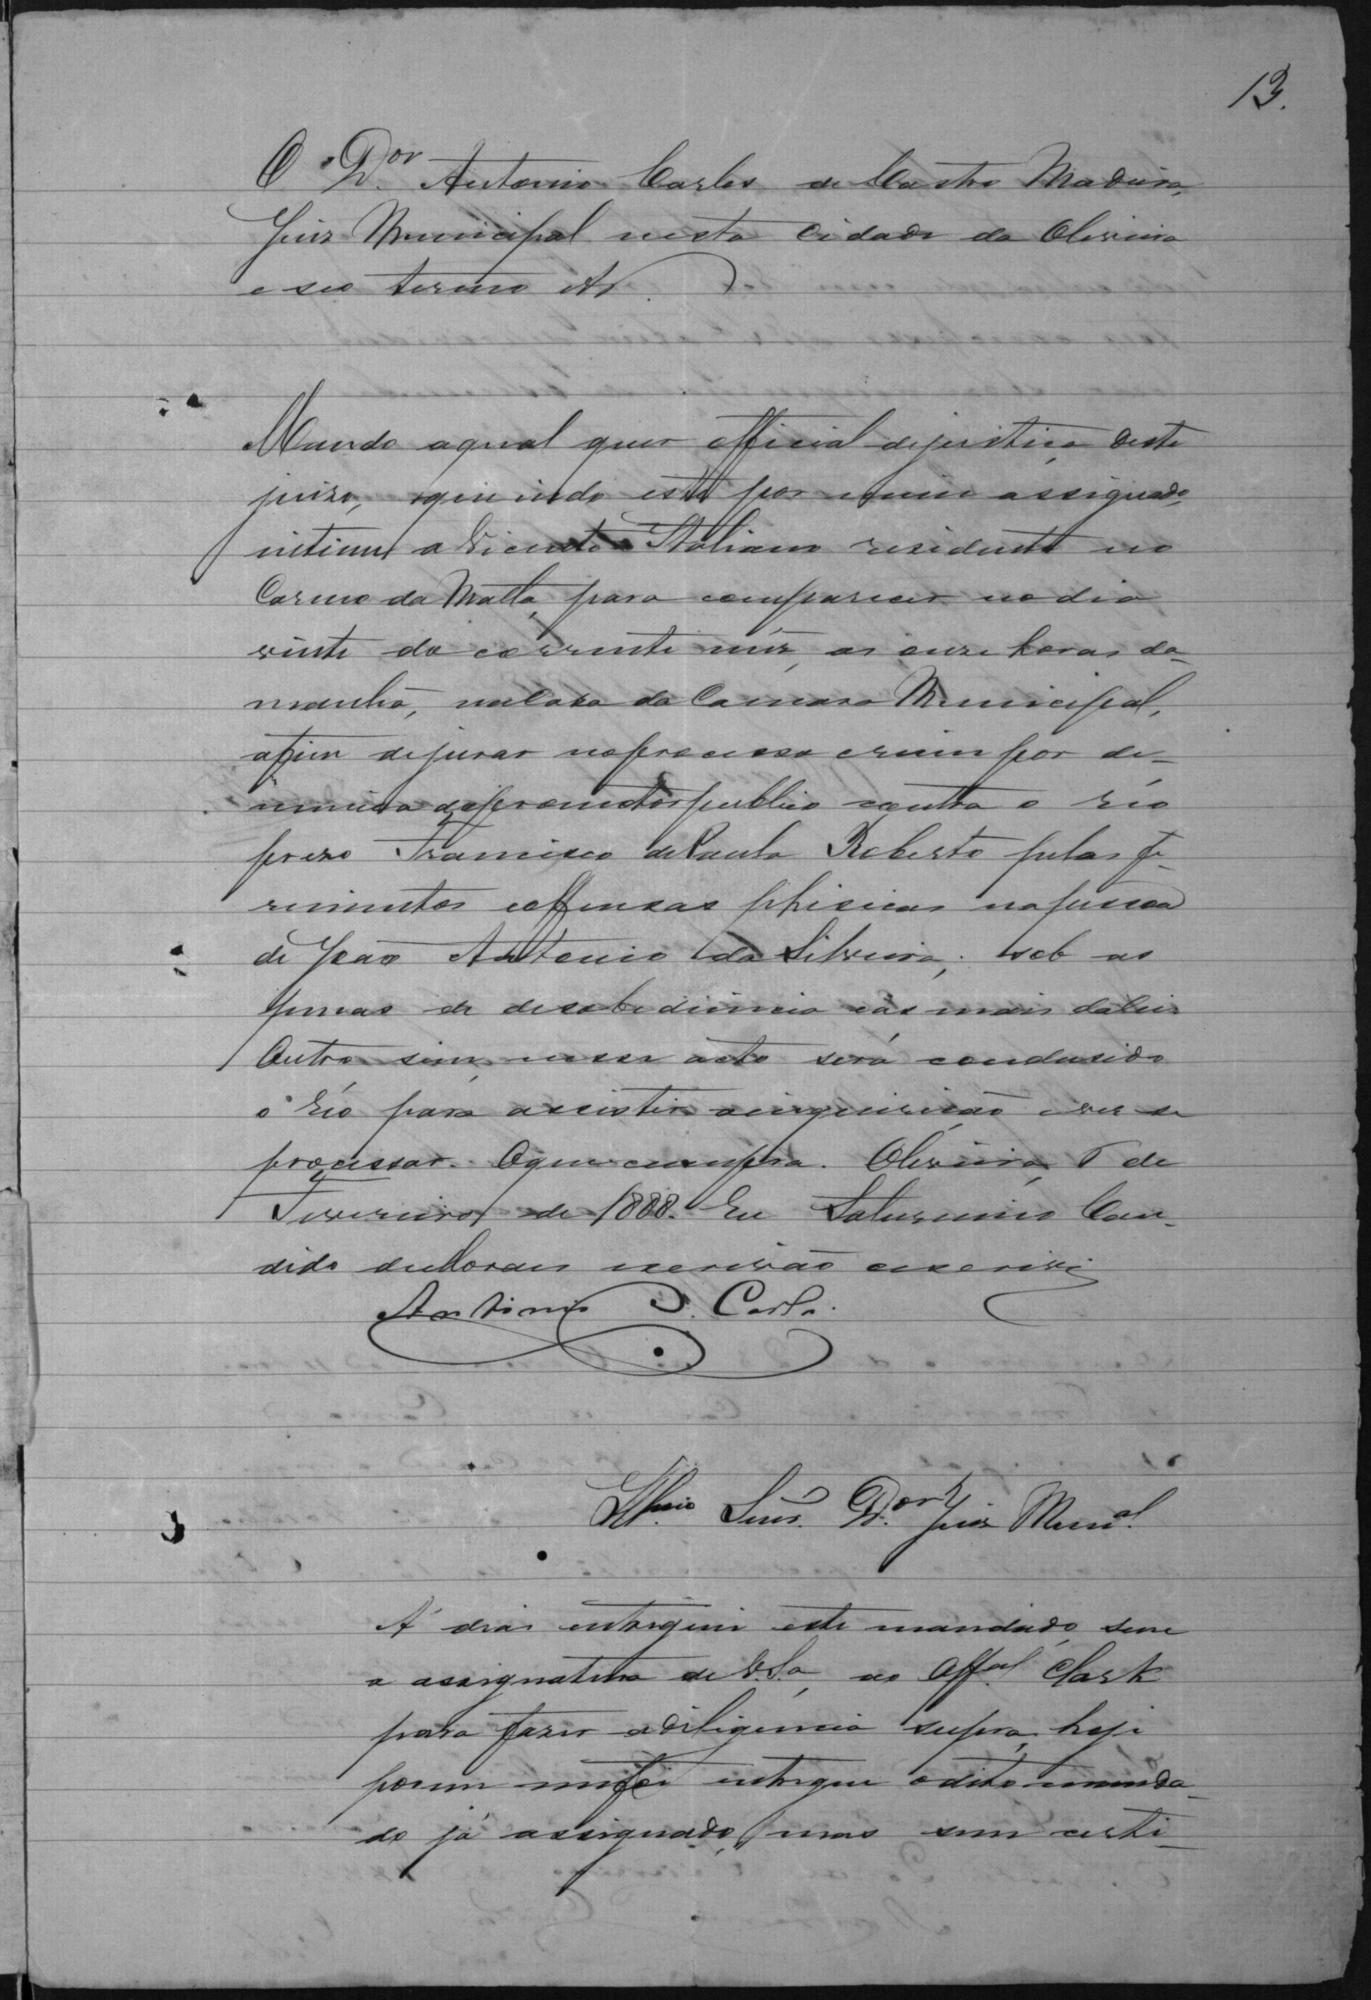 13.
O Dor. Antonio Carlos de Castro Madeira,
Juiz Municipal nesta Cidade da Oliveira
e seo termo etc.
Mando aqual quer official dejustiça deste
juizo, aquem indo este por mim assignado,
intime a Vicente Italiano residente no
Carmo da Matta, para comparecer nodia
vinte do corrente mez, as onze horas da
manhã, na Casa da Camara Municipal,
afim dejurar noprocesso crime por de-
nuncia do promotor publico contra o réo
prezo Francisco de Paula Roberto pelos fe-
rimentos e offensas phisicas napessoa
de João Antonio da Silveira; sob as
penas de desobediencia e as mais da lei.
Outro sim, nesse acto será condusido
o réo para assistir a inquirição e ver se
processar. O que cumpra. Oliveira, 6 de
Fevereiro de 1888. Eu Saturnino Can-
dido de Moraes escrivão escrevi
Antonio Carlo.
Illmo. Senr. Dor. Juiz Munal.
A' dias entreguei este mandado, sem
a assignatura de V.Sa, ao Offal. Clark
para fazer a diligencia supra, hoje
porem me foi entregue o dito manda-
do já assignado, mas sem certi-